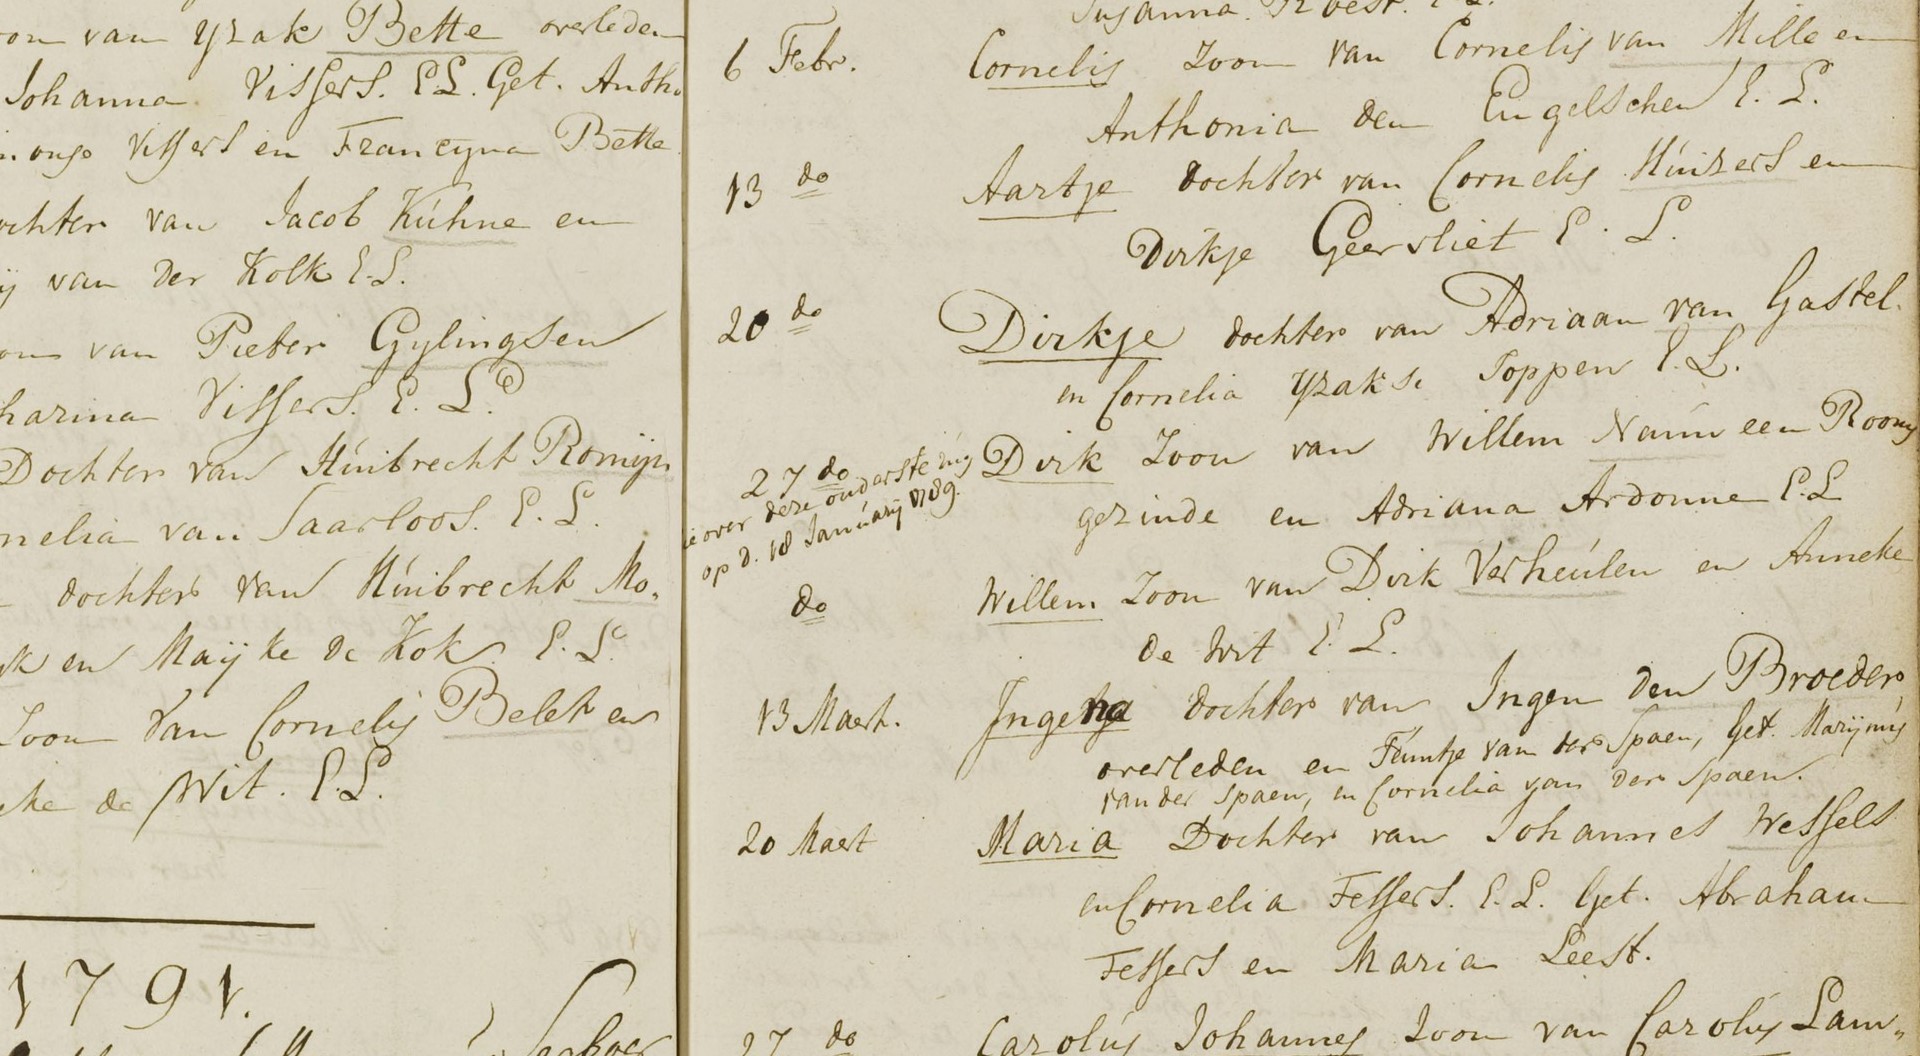 van Yzak Bette overleden
Johanna Vissers. E L. Get. Antho
Vissers en Francyna Bette
ochter van Jacob Kúhne en
van der Kolk E. L.
van Pieter Gylingsen
harina Vissers. E. L.
Dochter van Húibrecht Romijn
nelia van Saarloos. E. L.
dochter van Húibrecht Mo„
yk en Maijke de Kok E. L.
Zoon van Cornelis Belet en
ke de Wit. E. L.
1791.
Susanna E L.
6 Febr. Cornelis Zoon van Cornelis van Mille en
Anthonia den Engelschen E. L.
13 do Aartje dochter van Cornelis Húizers en
Dirkje Geervliet E. L.
20 do Dirkje dochter van Adriaan van Gastel.
en Cornelia Yzakse Toppen E. L.
27 do Dirk Zoon van Willem Naúiveen Rooms
over deze onderste
op d. 18 Janúarij 1789.
gezinde en Adriana Ardonne E. L
do Willem Zoon van Dirk Verheúlen en Anneke
de Wit E. L.
13 Maert. dochter van Ingen den Broeder,
overleden en Teuntje van der Spaen, Get. Marijnús
van der Spaen, en Cornelia van der Spaen.
20 Maert Maria Dochter van Johannes Wessels
en Cornelia Fessers. E. L. Get. Abraham
Fessers en Maria Leest.
27 do Carolús Johannes Zoon van Carolús Lam„